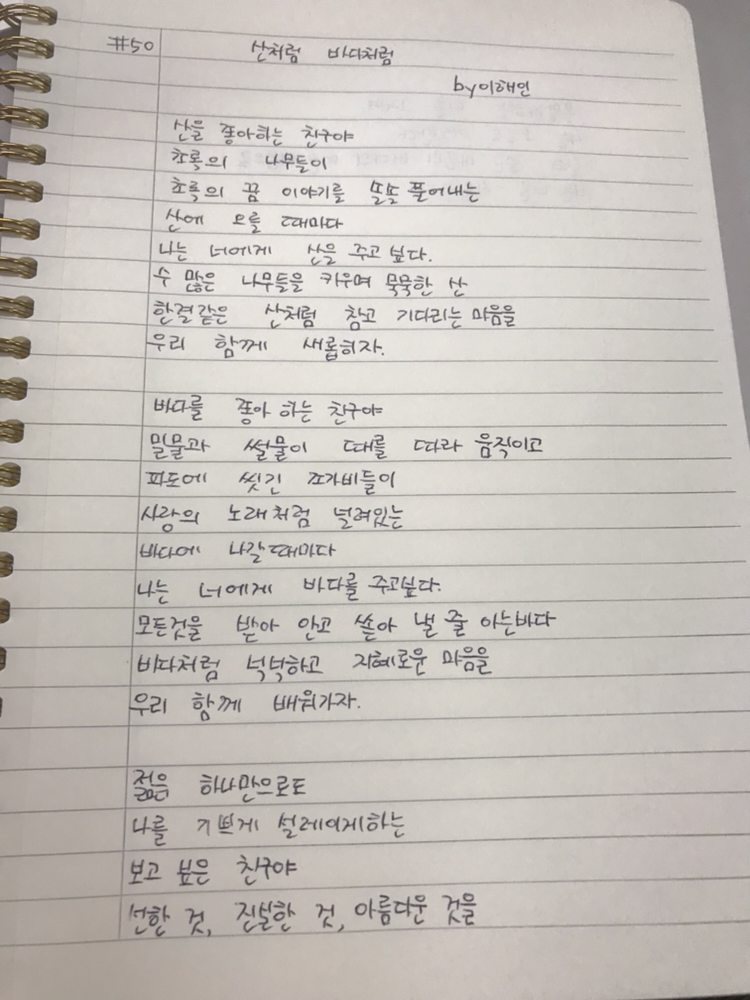 #50 산처럼 바다처럼
by 이해인
산을 좋아하는 친구야
초록의 나무들이
초록의 꿈 이야기를 솔솔 풀어내는
산에 오를 때마다
나는 너에게 산을 주고 싶다.
수 많은 나무들을 키우며 묵묵한 산
한결같은 산처럼 참고 기다리는 마음을
우리 함께 새롭히자.
바다를 좋아 하는 친구야
밀물과 썰물이 때를 따라 움직이고
파도에 씻긴 조가비들이
사랑의 노래처럼 널려있는
바다에 나갈때마다
나는 너에게 바다를 주고싶다.
모든것을 받아 안고 쏟아 낼 줄 아는바다
바다처럼 넉넉하고 지혜로운 마음을
우리 함께 배워가자.
젊음 하나만으로도
나를 기쁘게 설레이게하는
보고 싶은 친구야
선한 것, 진실한 것, 아름다운 것을